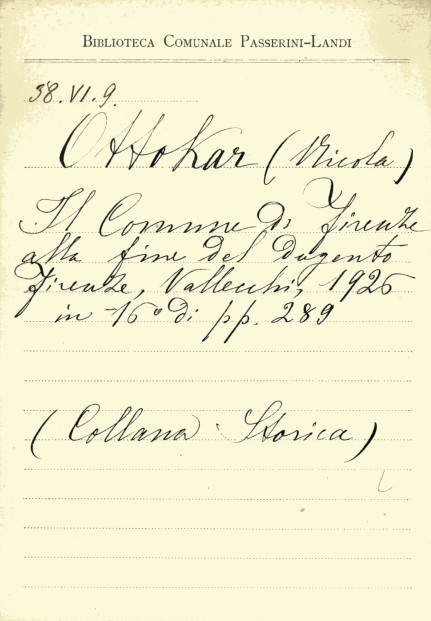 Biblioteca Comunale Passerini-Landi
58.VI.9.
Ottokar (Nicola)
Il Comune di Firenze
alla fine del dugento
Firenze, Vallecchi, 1926
in -16° di pp. 289
(Collana Storica)